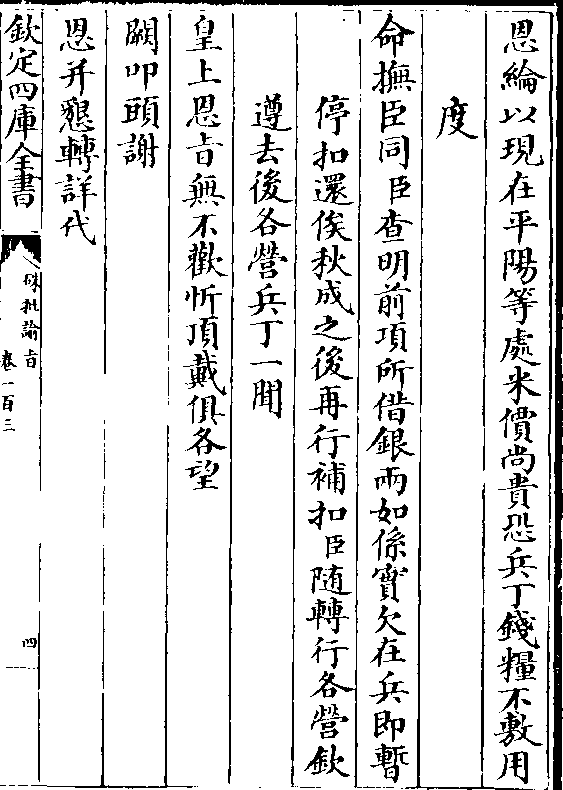 恩綸以現在平陽等處米價尚貴恐兵丁錢糧不敷用
度
命撫臣同臣查明前項所借銀兩如係實欠在兵即暫
停扣還俟秋成之後再行補扣臣随轉行各營欽
遵去後各營兵丁一聞
皇上恩旨無不歡忻頂戴俱各望
闕叩頭謝
恩并懇轉詳代
欽定四庫全書
硃批諭旨
卷一百三
四